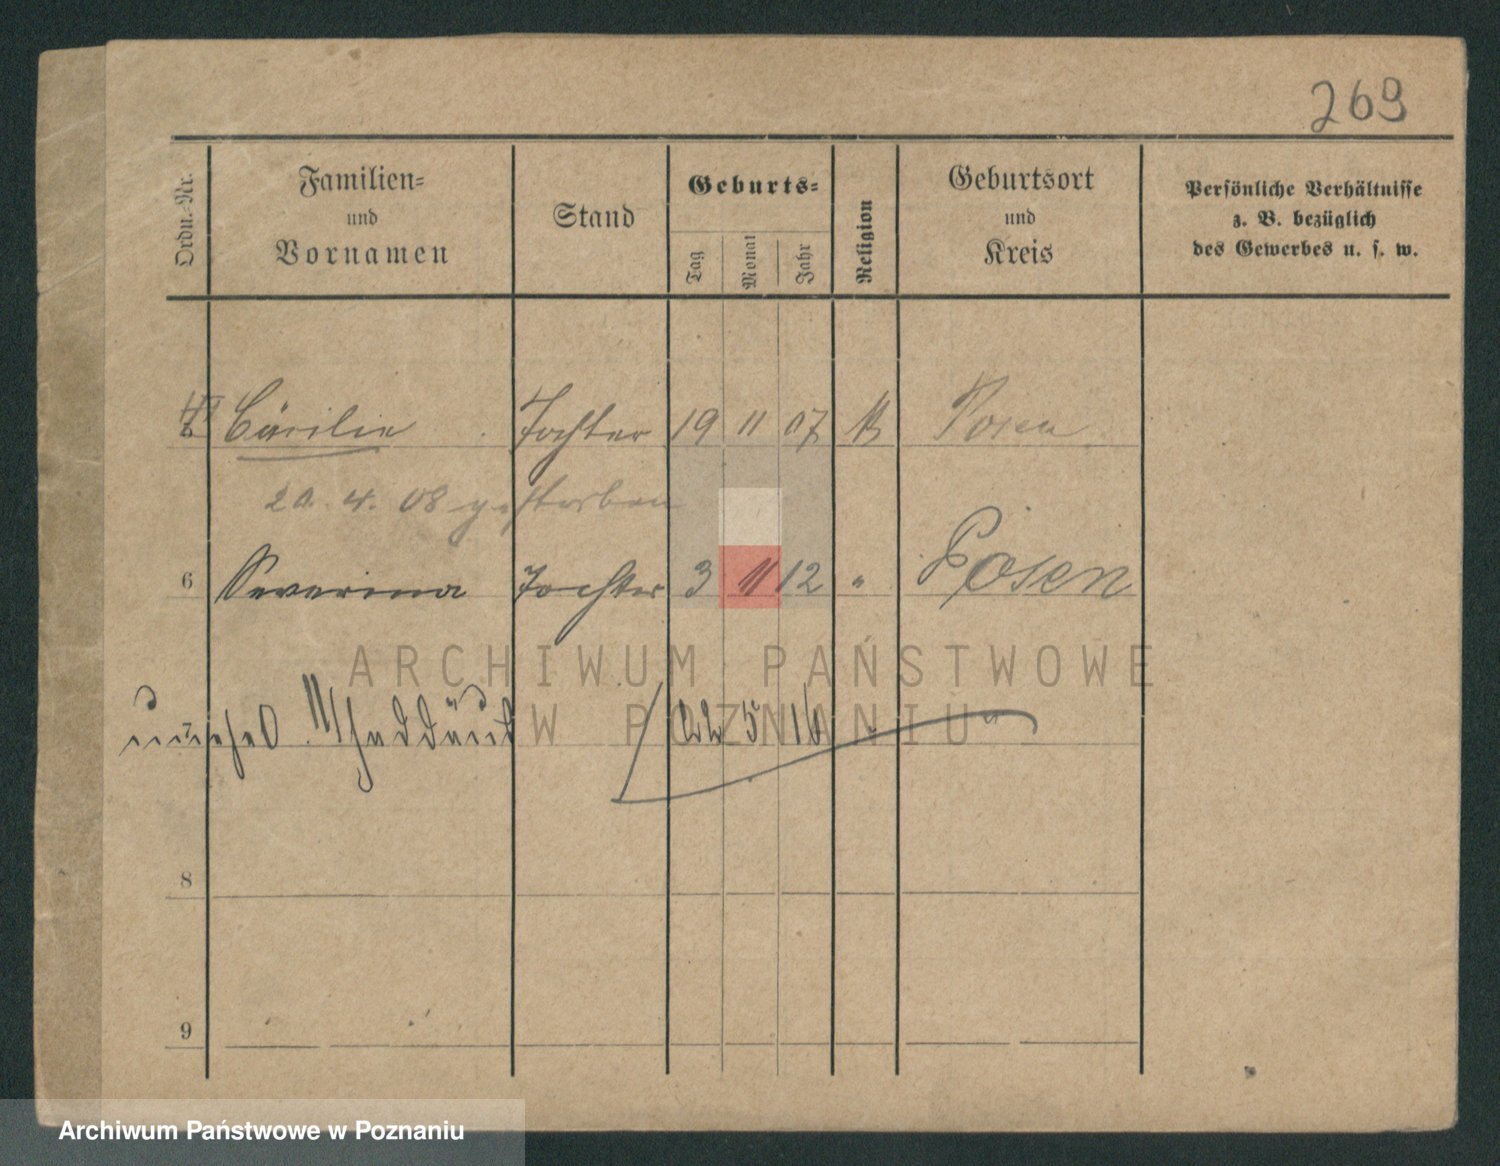 269
Ordn.-Nr.
Familien-
und
Vornamen
Stand
Geburts-
Tag
Monat
Jahr
Religion
Geburtsort
und
Kreis
Persönliche Verhältnisse
z. B. bezüglich
des Gewerbes u. s. w.
Cäcilie Tochter 19 11 07 Posen
20. 4. 08 gestorben
6 Severina Tochter 3 11 12 " Posen
ARCHIWUM PAŃSTWOWE
W POZNANIU
7 5 16
8
9
Archiwum Państwowe w Poznaniu